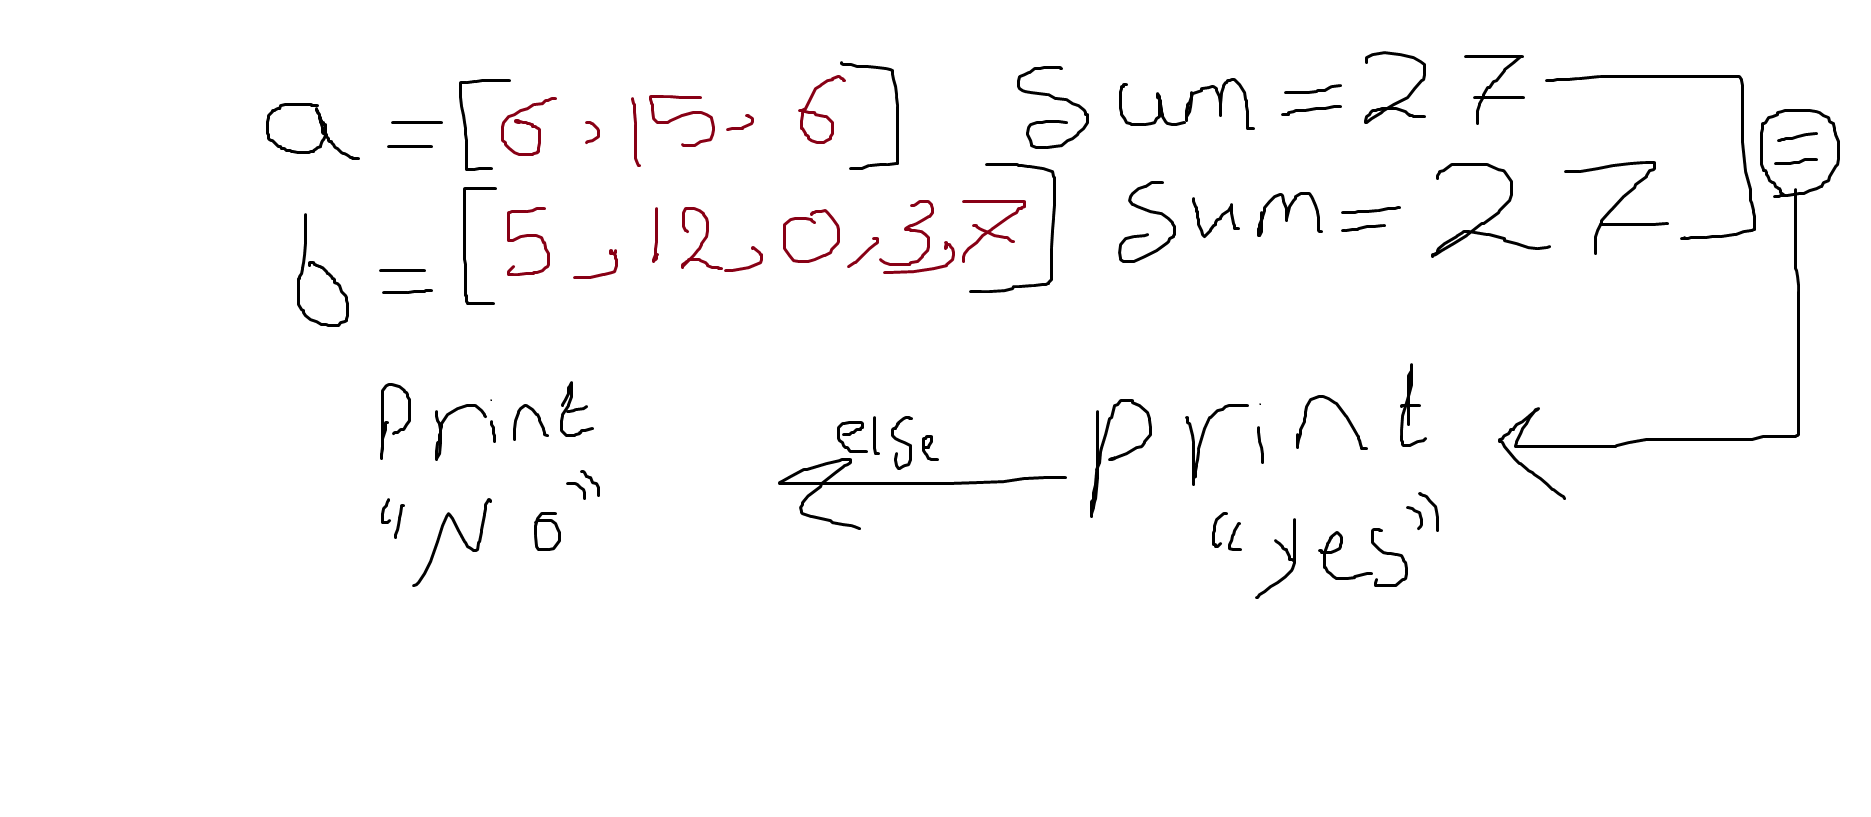 a = [6, 15, 6] sum = 27
b = [5, 12, 0, 3, 7] sum = 27
=
print else print
"No" "yes"